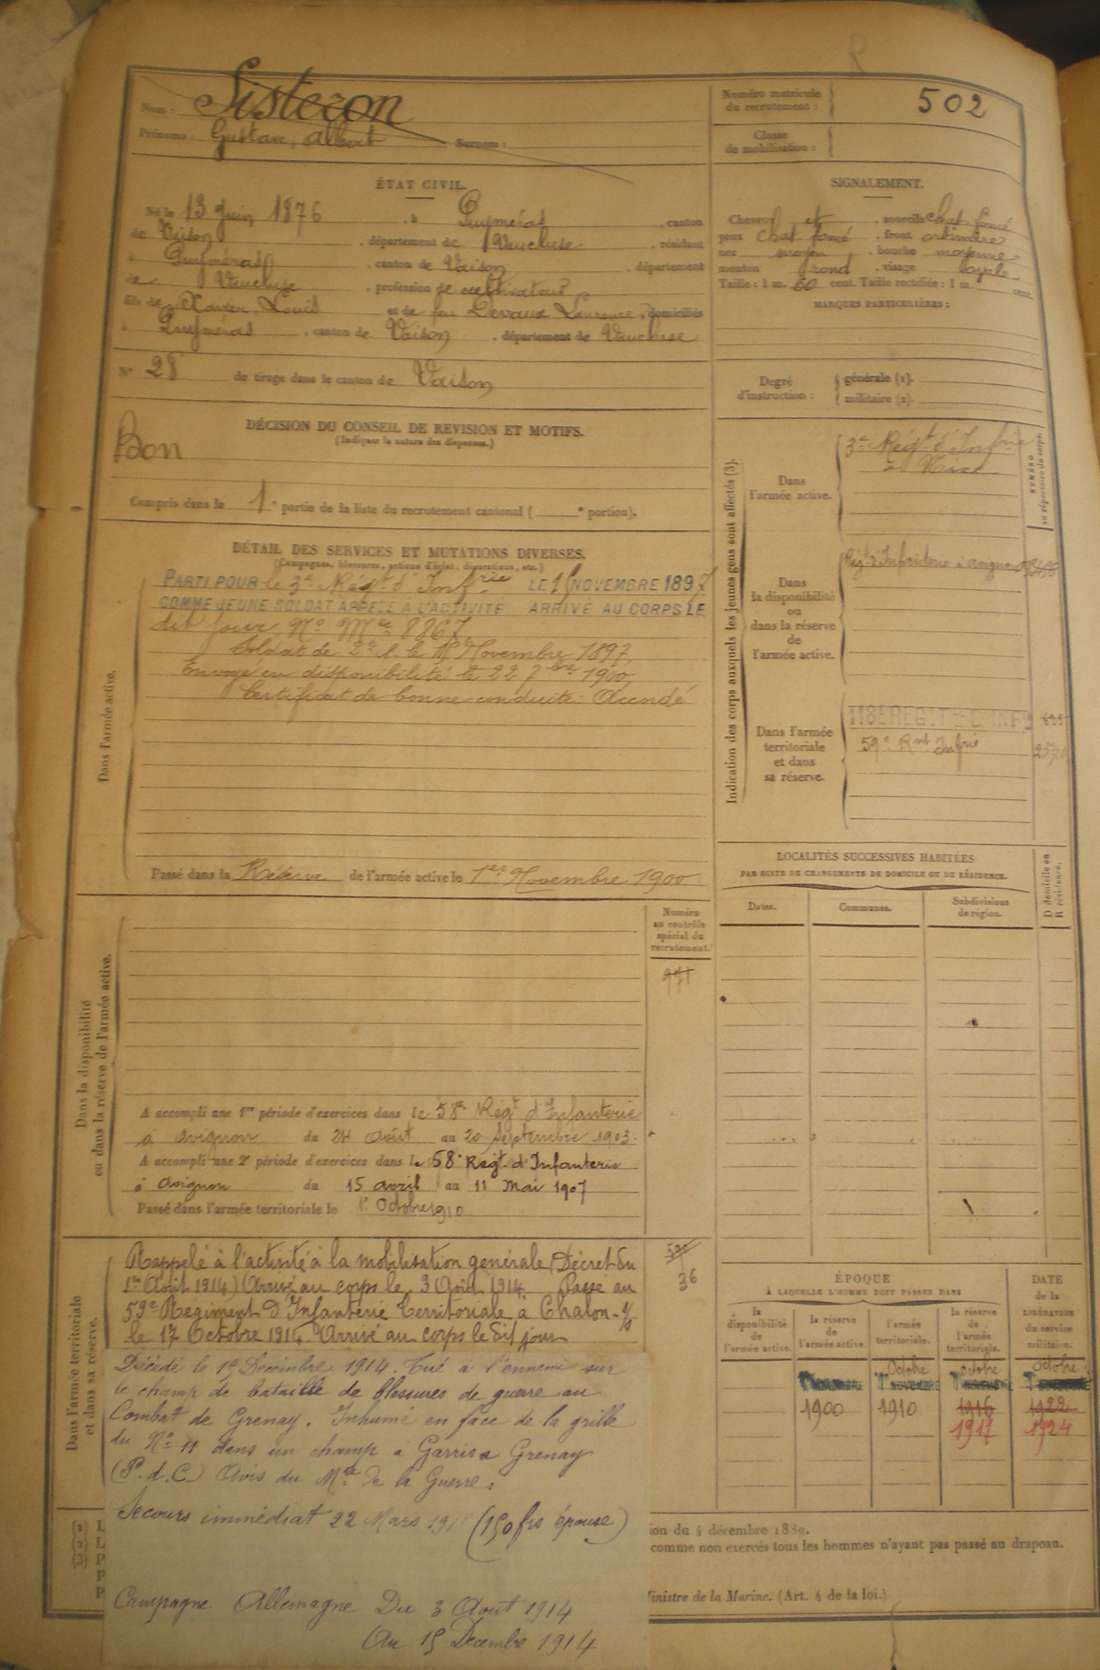 Nom : Sisteron
Prénoms : Gustave, Albert Surnom :
Numéro matricule du recrutement : 502
Classe de mobilisation :
ÉTAT CIVIL.
Né le 13 Juin 1876, à Puyméras, canton
de Vaison, département de Vaucluse, résidant
à Puyméras, canton de Vaison, département
de Vaucluse, profession de cultivateur
fils de Xavier, Louis et de feu Devaux Laurence, domiciliés
à Puyméras, canton de Vaison, département de Vaucluse
N° 28 de tirage dans le canton de Vaison
SIGNALEMENT.
Cheveux et sourcils chat. foncé
yeux chat foncé, front ordinaire
nez moyen, bouche moyenne
menton rond, visage ovale
Taille : 1 m. 60 cent. Taille rectifiée : 1 m. cent.
MARQUES PARTICULIÈRES :
Degré d'instruction : générale (1).
militaire (2).
DÉCISION DU CONSEIL DE REVISION ET MOTIFS.
(Indiquer la nature des dispenses.)
Bon
Compris dans la 1e partie de la liste du recrutement cantonal ( e portion).
DÉTAIL DES SERVICES ET MUTATIONS DIVERSES.
(Campagnes, blessures, actions d'éclat, décorations, etc.)
Dans l'armée active.
PARTI POUR le 3e Régt d'Infrie LE 15 NOVEMBRE 1897
COMME JEUNE SOLDAT APPELÉ A L'ACTIVITÉ ARRIVÉ AU CORPS LE
dit jour No Mle 8867
Soldat de 2e cl. le Novembre 1897
Envoyé en disponibilité le 22 7bre 1900
Certificat de bonne conduite Accordé
Passé dans la Réserve de l'armée active le 1er Novembre 1900
Indication des corps auxquels les jeunes gens sont affectés (3).
Dans l'armée active.
3e Régt d'Infrie
à Nice
NUMÉRO au répertoire du corps.
Dans la disponibilité ou dans la réserve de l'armée active.
Régt d'Infanterie à Avignon
Dans l'armée territoriale et dans sa réserve.
118E REGIT D'INFIE
59e Rmt Infrie
LOCALITÉS SUCCESSIVES HABITÉES
PAR SUITE DE CHANGEMENTS DE DOMICILE OU DE RÉSIDENCE.
Dates. Communes. Subdivisions de région. D domicile ou R résidence.
Dans la disponibilité ou dans la réserve de l'armée active.
Numéro au contrôle spécial du recrutement.
971
A accompli une 1re période d'exercices dans le 58e Régt d'Infanterie
à Avignon du 24 Août au 20 Septembre 1903.
A accompli une 2e période d'exercices dans le 58e Régt d'Infanterie
à Avignon du 15 avril au 11 Mai 1907
Passé dans l'armée territoriale le 1er Octobre 1910
Dans l'armée territoriale et dans sa réserve.
Rappelé à l'activité à la mobilisation générale (Décret du
1er Août 1914) Arrivé au corps le 3 Août 1914. Passé au
59e Régiment d'Infanterie Territoriale à Chalon-s/s
le 17 Octobre 1914. Arrivé au corps le dit jour
36
Décédé le 15 Décembre 1914. Tué à l'ennemi sur
le champ de bataille de blessures de guerre au
Combat de Grenay. Inhumé en face de la grille
du No 11 dans un champ à Grenay
(P.d.C.) Avis du Mtre de la Guerre.
Secours immédiat 22 Mars (150 frs épouse)
Campagne Allemagne Du 3 Août 1914
Au 15 Décembre 1914
ÉPOQUE
À LAQUELLE L'HOMME DOIT PASSER DANS
la disponibilité de l'armée active.
la réserve de l'armée active.
l'armée territoriale.
la réserve de l'armée territoriale.
DATE de la LIBÉRATION du service militaire.
Octobre octobre octobre
1900 1910 1916 1922
1917 1924
(1) L
(2) L
(3) P
ion du 4 décembre 1889.
comme non exercés tous les hommes n'ayant pas passé au drapeau.
Ministre de la Marine. (Art. 4 de la loi.)